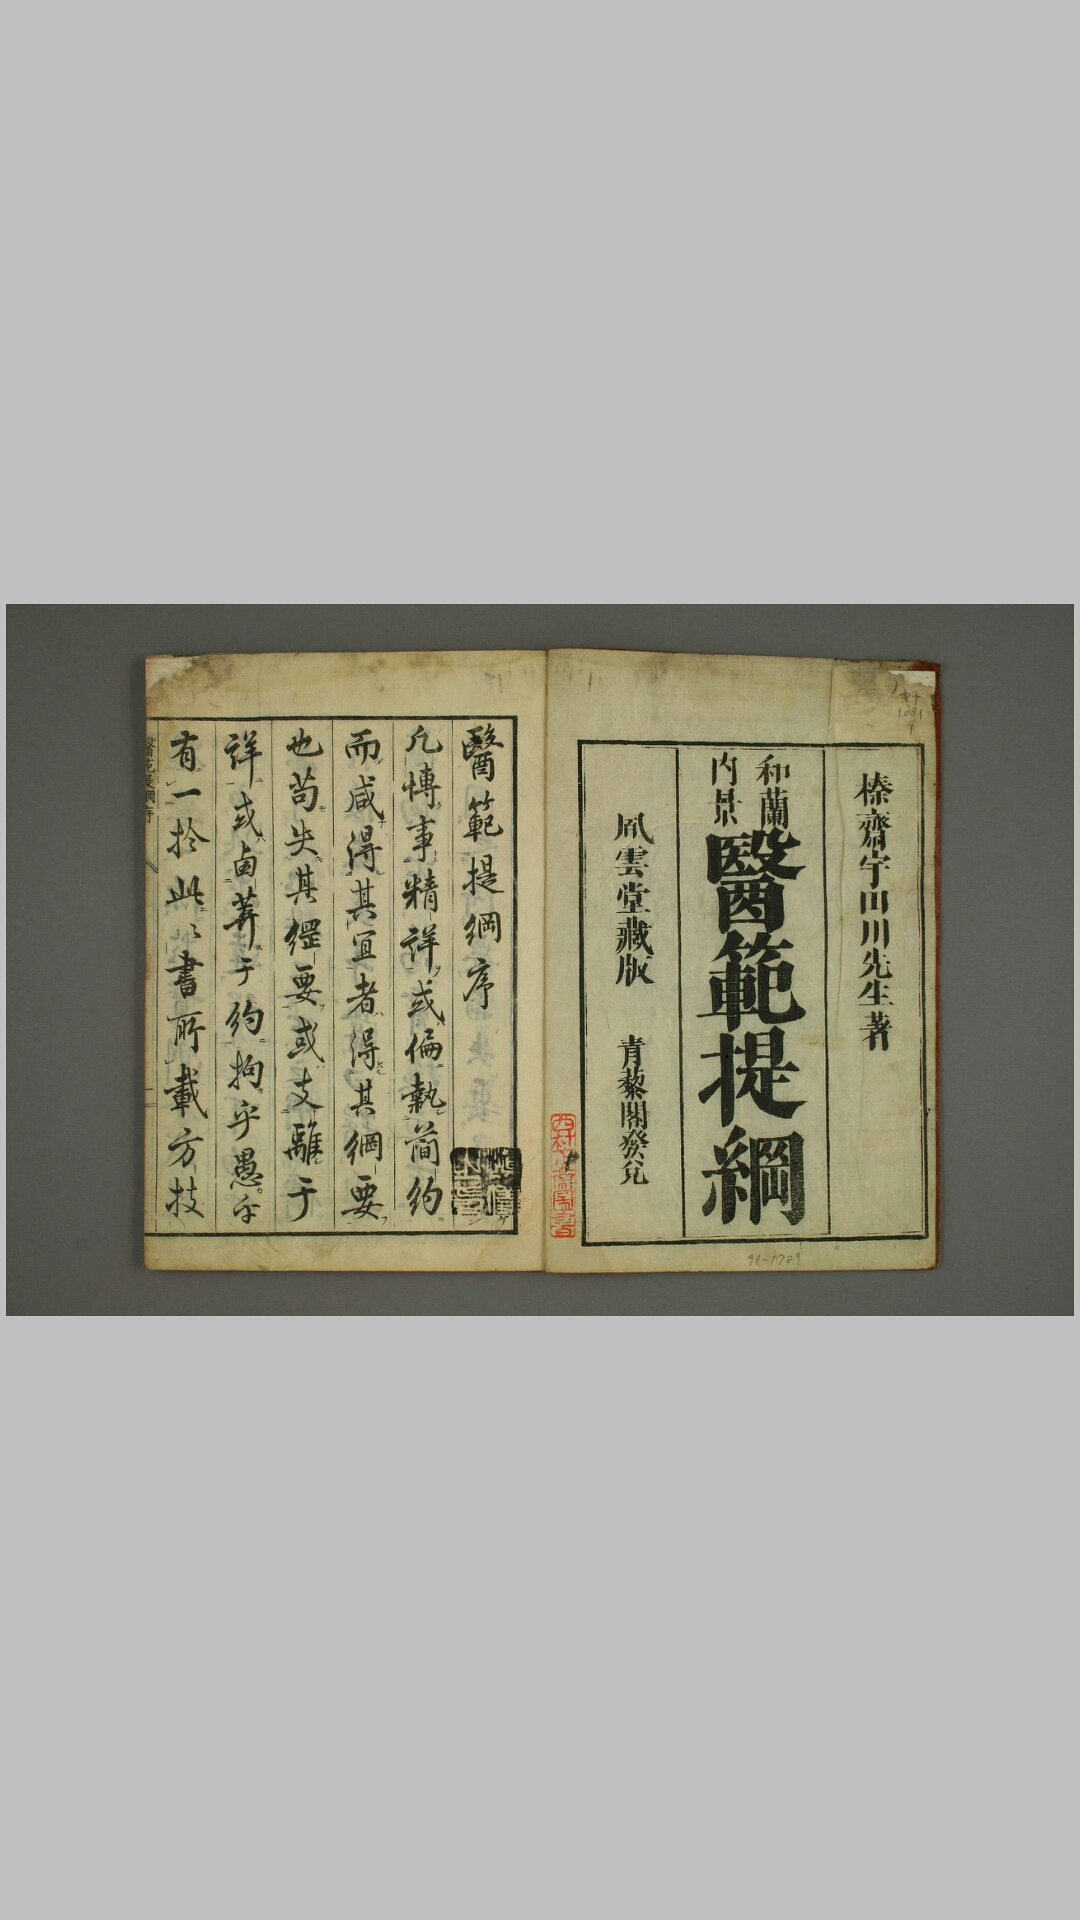 榛齋宇田川先生著
和蘭
内景
醫範提綱
風雲堂藏版　青藜閣發兌
醫範提綱序
凡慱事精詳或偏執簡約
而咸得其宜者得其綱要
也苟失其綱要或支離于
詳或鹵莽于約拘乎愚乎
有一於此書所載方技
91-1789